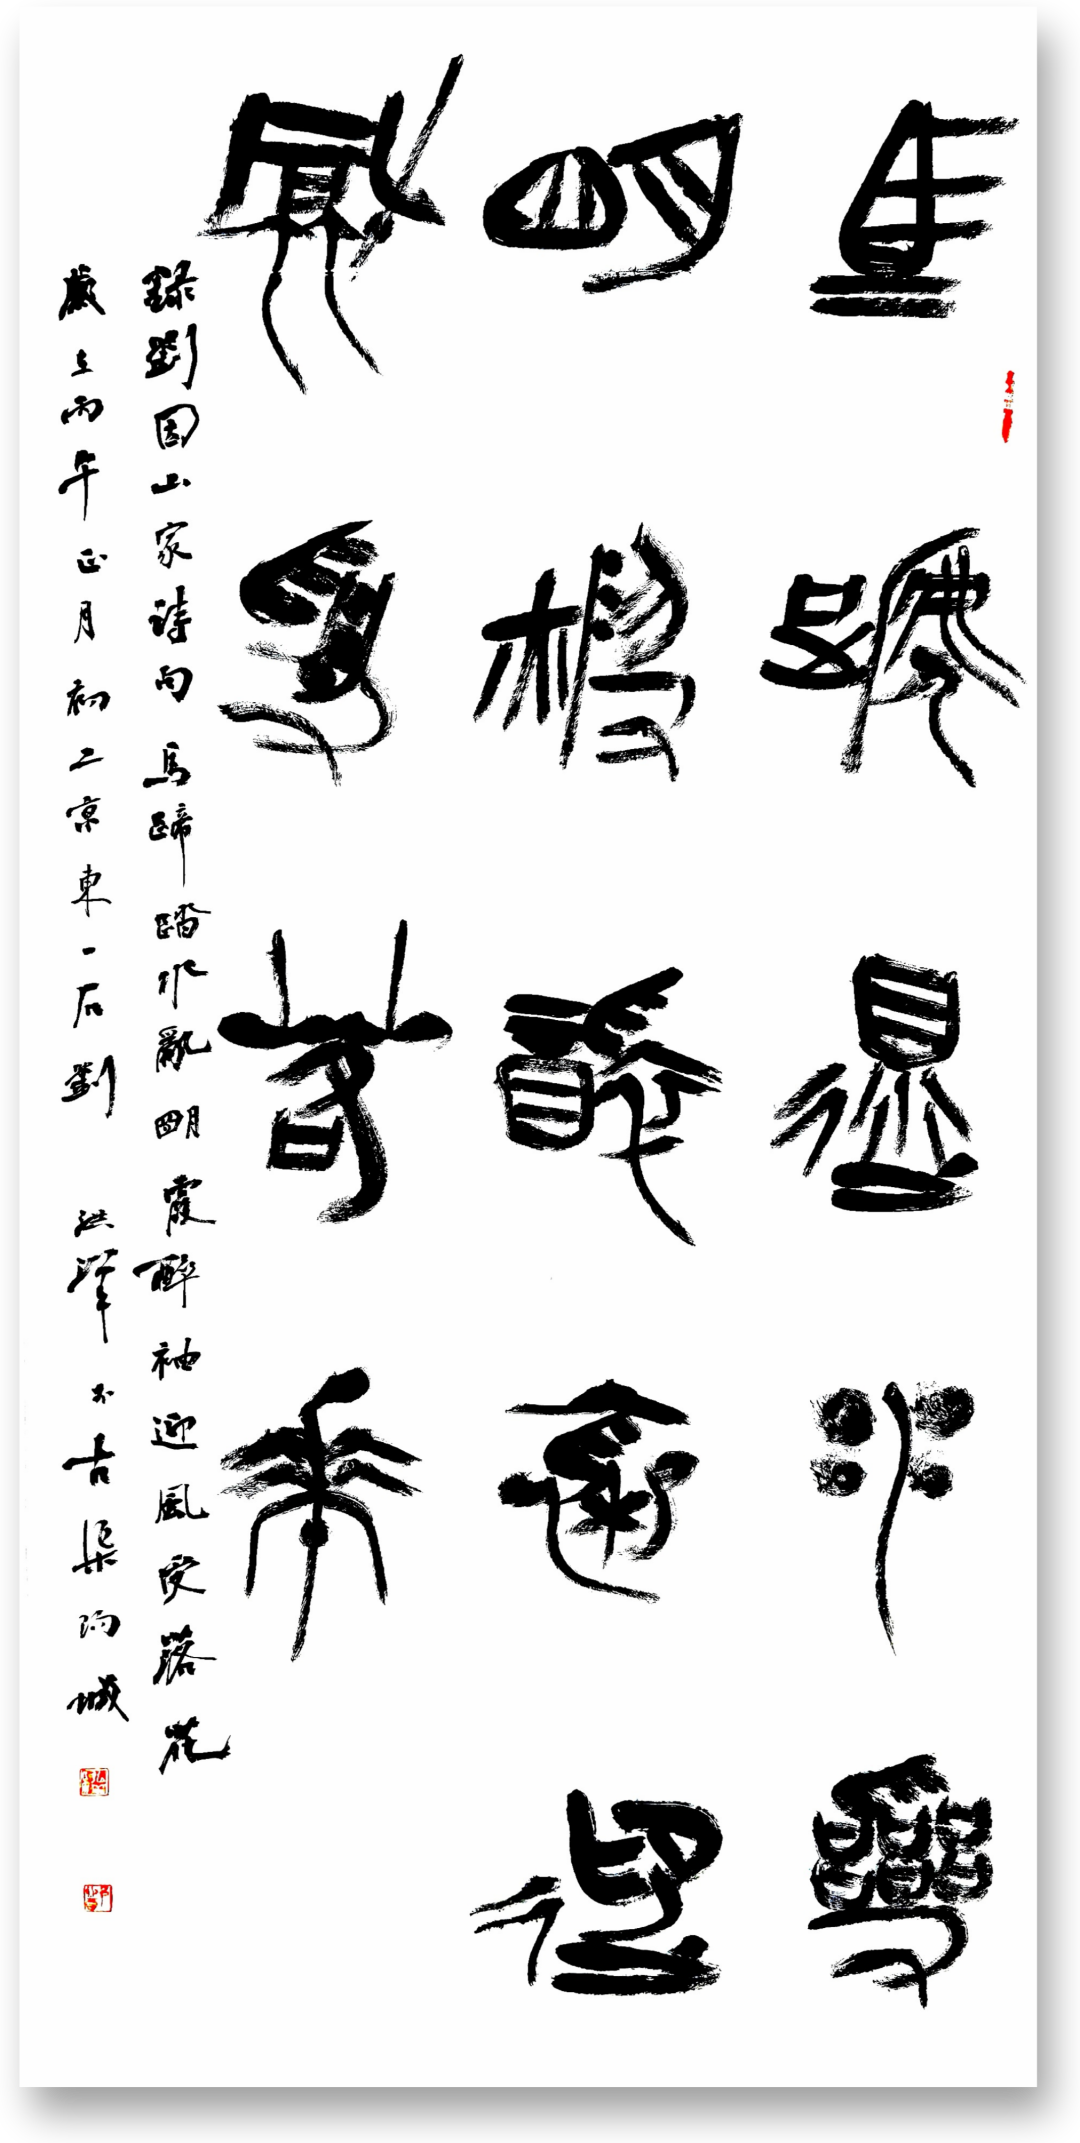 馬蹄踏水亂
明霞醉袖迎
風受落花
錄劉因山家詩句馬蹄踏水亂明霞醉袖迎風受落花
歲在丙午正月初二京東一石劉洪於古渠陽城